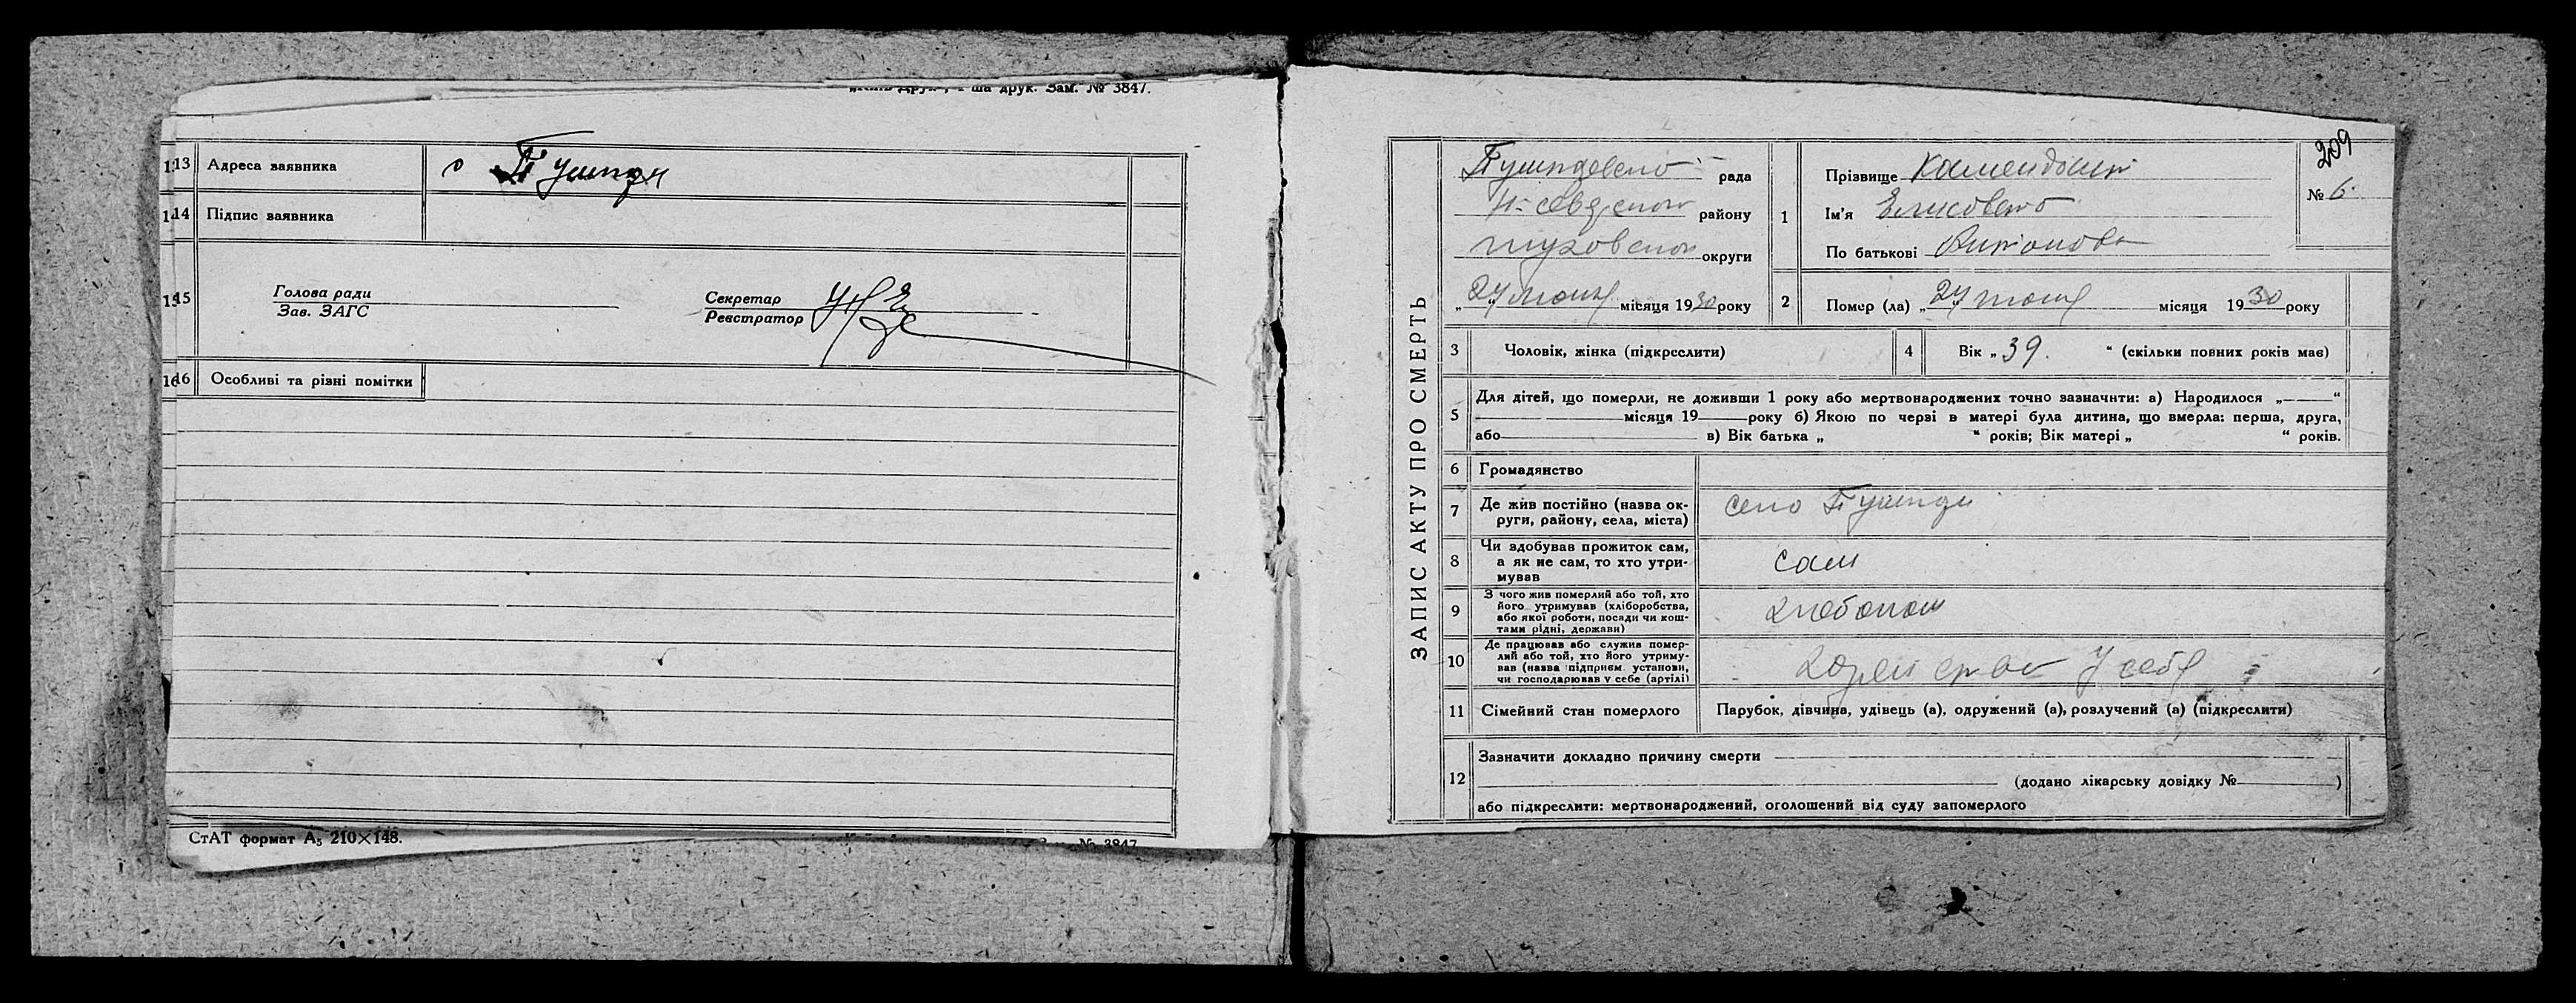 ша друк. Зам. № 3847.
13 Адреса заявника с Пушкари
14 Підпис заявника
15 Голова ради
Зав. ЗАГС
Секретар
Реєстратор
16 Особливі та різні помітки
СтАТ формат А₅ 210×148.
№ 3847
ЗАПИС АКТУ ПРО СМЕРТЬ
рада
району
округи
„27 місяця 1930 року
209
№ 6.
1 Прізвище Комендант
Ім'я
По батькові
2 Помер (ла) „27 місяця 1930 року
3 Чоловік, жінка (підкреслити)
4 Вік „39. “ (скільки повних років має)
5 Для дітей, що померли, не доживши 1 року або мертвонароджених точно зазначити: а) Народилося „ “
місяця 19 року б) Якою по черзі в матері була дитина, що вмерла: перша, друга,
або в) Вік батька „ “ років; Вік матері „ “ років.
6 Громадянство
7 Де жив постійно (назва ок-
руги, району, села, міста)
село Пушкари
8 Чи здобував прожиток сам,
а як не сам, то хто утри-
мував
сам
9 З чого жив померлий або той, хто
його утримував (хліборобства,
або якої роботи, посади чи кош-
тами рідні, держави)
10 Де працював або служив помер-
лий або той, хто його утриму-
вав (назва підприєм. установи,
чи господарював у себе (артілі)
у себе
11 Сімейний стан померлого
Парубок, дівчина, удівець (а), одружений (а), розлучений (а) (підкреслити)
12 Зазначити докладно причину смерти
(додано лікарську довідку № )
або підкреслити: мертвонароджений, оголошений від суду запомерлого